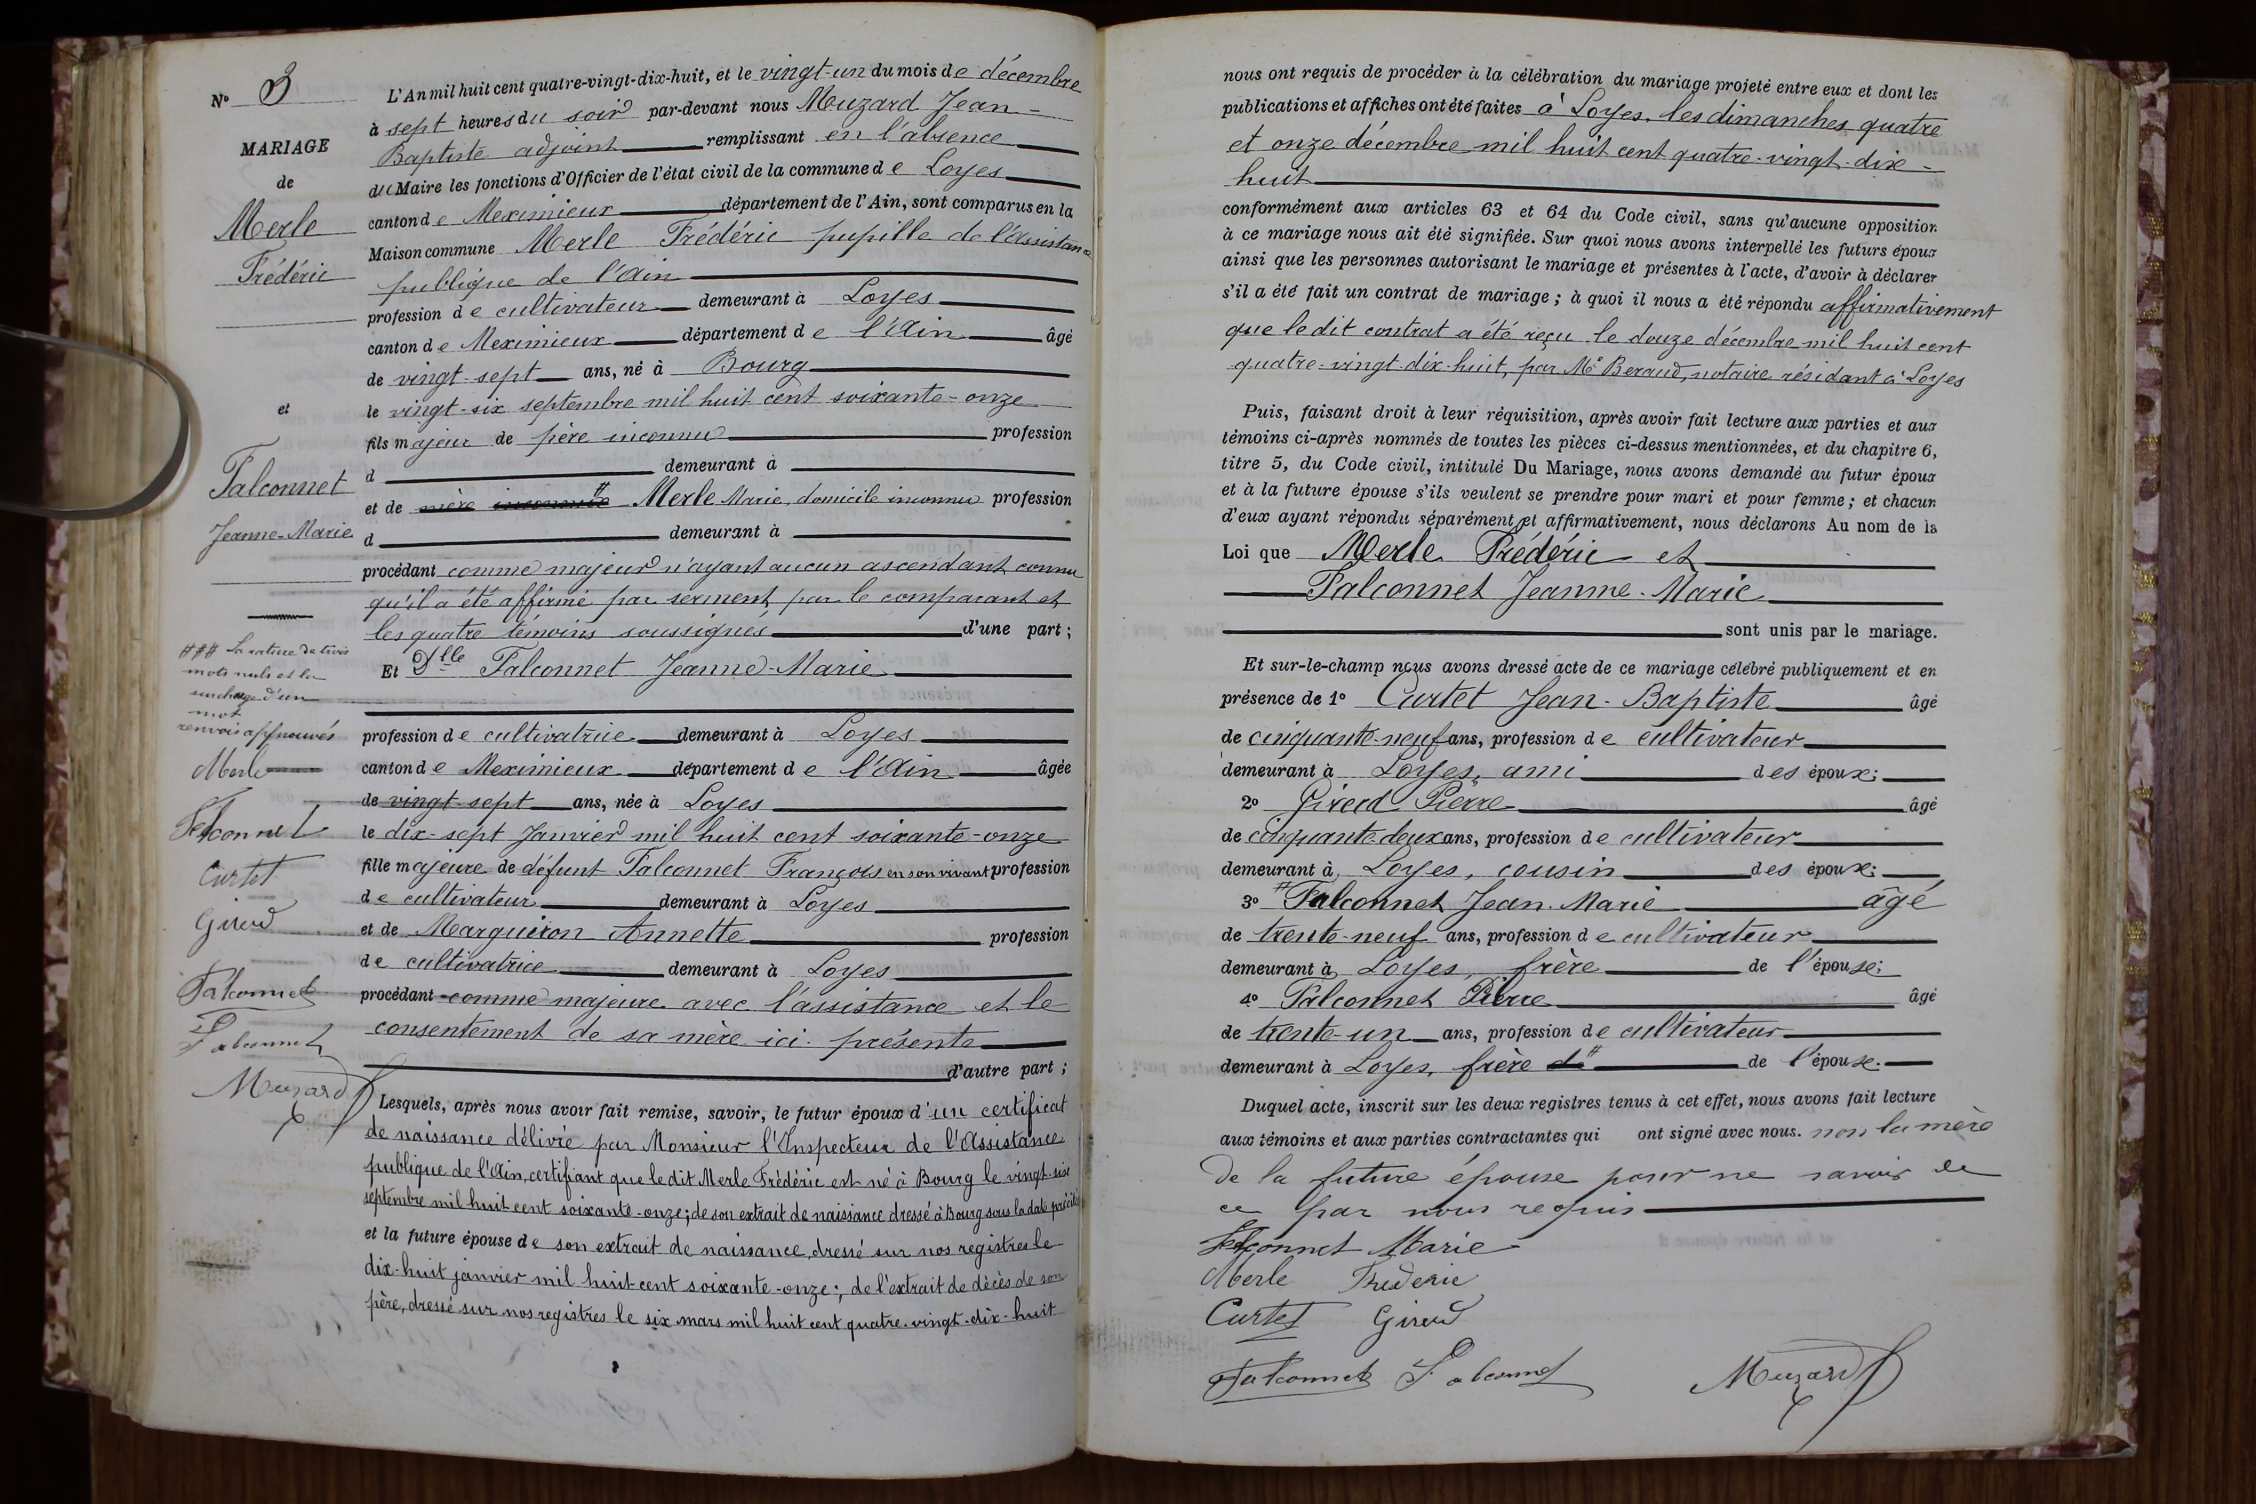 Nº 3
MARIAGE
de
Merle
Frédéric
et
Falconnet
Jeanne-Marie
### La rature de trois
mots nuls et la
surcharge d'un
mot
renvois approuvés
Merle
Falconnet
Curtet
Girod
Falconnet
Falconnet
Muzard
L'An mil huit cent quatre-vingt-dix-huit, et le vingt-un du mois de décembre
à sept heures du soir par-devant nous Muzard Jean-
Baptiste adjoint remplissant en l'absence
du Maire les fonctions d'Officier de l'état civil de la commune de Loyes
canton de Meximieux département de l'Ain, sont comparus en la
Maison commune Merle Frédéric pupille de l'assistance
publique de l'Ain
profession de cultivateur demeurant à Loyes
canton de Meximieux département de l'Ain âgé
de vingt-sept ans, né à Bourg
le vingt-six septembre mil huit cent soixante-onze
fils majeur de père inconnu profession
d demeurant à
et de mère inconnue # Merle Marie, domicile inconnu profession
d demeurant à
procédant comme majeur n'ayant aucun ascendant connu
qu'il a été affirmé par serment par le comparant et
les quatre témoins soussignés d'une part ;
Et Dlle Falconnet Jeanne-Marie
profession de cultivatrice demeurant à Loyes
canton de Meximieux département de l'Ain âgée
de vingt-sept ans, née à Loyes
le dix-sept Janvier mil huit cent soixante-onze
fille majeure de défunt Falconnet François en son vivant profession
de cultivateur demeurant à Loyes
et de Marguiron Annette profession
de cultivatrice demeurant à Loyes
procédant comme majeure avec l'assistance et le
consentement de sa mère ici présente
d'autre part ;
Lesquels, après nous avoir fait remise, savoir, le futur époux d'un certificat
de naissance délivré par Monsieur l'Inspecteur de l'Assistance
publique de l'Ain, certifiant que le dit Merle Frédéric est né à Bourg le vingt-six
septembre mil huit cent soixante-onze; de son extrait de naissance dressé à Bourg sous la date précitée
et la future épouse de son extrait de naissance, dressé sur nos registres le
dix-huit janvier mil huit cent soixante-onze; de l'extrait de décès de son
père, dressé sur nos registres le six mars mil huit cent quatre-vingt-dix-huit
nous ont requis de procéder à la célébration du mariage projeté entre eux et dont les
publications et affiches ont été faites à Loyes, les dimanches quatre
et onze décembre mil huit cent quatre-vingt-dix-
huit
conformément aux articles 63 et 64 du Code civil, sans qu'aucune opposition
à ce mariage nous ait été signifiée. Sur quoi nous avons interpellé les futurs époux
ainsi que les personnes autorisant le mariage et présentes à l'acte, d'avoir à déclarer
s'il a été fait un contrat de mariage ; à quoi il nous a été répondu affirmativement
que ledit contrat a été reçu le douze décembre mil huit cent
quatre-vingt-dix-huit, par Me Beraud, notaire résidant à Loyes
Puis, faisant droit à leur réquisition, après avoir fait lecture aux parties et aux
témoins ci-après nommés de toutes les pièces ci-dessus mentionnées, et du chapitre 6,
titre 5, du Code civil, intitulé Du Mariage, nous avons demandé au futur époux
et à la future épouse s'ils veulent se prendre pour mari et pour femme ; et chacun
d'eux ayant répondu séparément et affirmativement, nous déclarons Au nom de la
Loi que Merle Frédéric et
Falconnet Jeanne-Marie
sont unis par le mariage.
Et sur-le-champ nous avons dressé acte de ce mariage célébré publiquement et en
présence de 1º Curtet Jean-Baptiste âgé
de cinquante-neuf ans, profession de cultivateur
demeurant à Loyes, ami des époux;
2º Girod Pierre âgé
de cinquante-deux ans, profession de cultivateur
demeurant à Loyes, cousin des époux;
3º # Falconnet Jean Marie âgé
de trente-neuf ans, profession de cultivateur
demeurant à Loyes, frère de l'épouse;
4º Falconnet Pierre âgé
de trente-un ans, profession de cultivateur
demeurant à Loyes, frère de # de l'épouse.
Duquel acte, inscrit sur les deux registres tenus à cet effet, nous avons fait lecture
aux témoins et aux parties contractantes qui ont signé avec nous. non la mère
de la future épouse pour ne savoir de
ce par nous requis
Falconnet Marie
Merle Frederic
Curtet Girod
Falconnet Falconnet Muzard